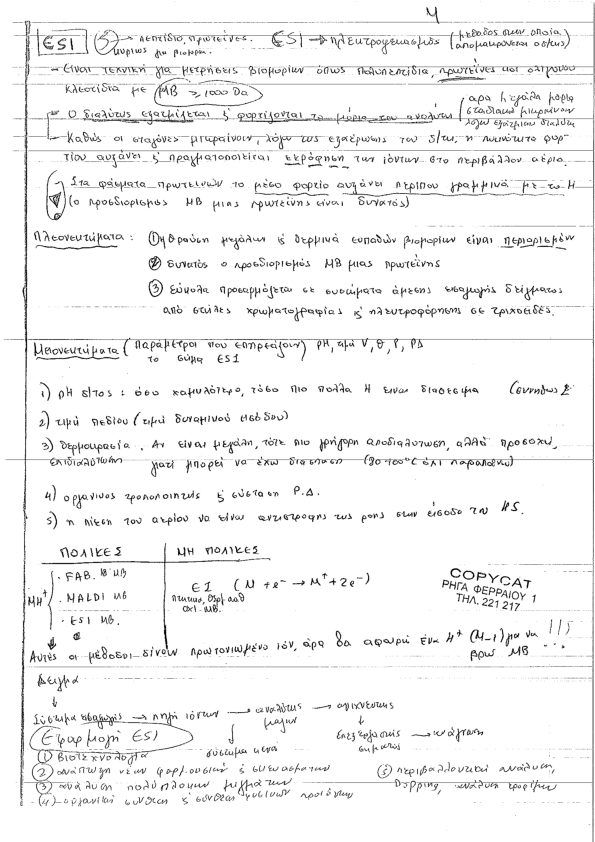 4
ESI → πεπτίδια, πρωτεΐνες. ESI → ηλεκτροψεκασμός (μέθοδος στην οποία
κυρίως για βιομορ. απομακρύνεται ο δ/της)
- Είναι τεχνική για μετρήσεις βιομορίων όπως πολυπεπτίδια, πρωτεΐνες και ολιγονου
κλεοτίδια με MB ≥ 1000 Da
- Ο διαλύτης εξατμίζεται & φορτίζονται τα μόρια του αναλύτη (αρα μεγάλα μόρια
σταδιακά μικραίνουν
λόγω εξάτμισης διαλύτη
- Καθώς οι σταγόνες μικραίνουν, λόγω της εξαέρωσης του δ/τη, η πυκνότητα φορ-
τίου αυξάνει & πραγματοποιείται εκρόφηση των ιόντων στο περιβάλλον αέριο.
Στα φάσματα πρωτεϊνών το μέσο φορτίο αυξάνει περίπου γραμμικά με το Μ
(ο προσδιορισμός MB μιας πρωτεΐνης είναι δυνατός)
Πλεονεκτήματα: ① η θραύση μεγάλων & θερμικά ευπαθών βιομορίων είναι περιορισμέν
② δυνατός ο προσδιορισμός MB μιας πρωτεΐνης
③ εύκολα προσαρμόζεται σε συστήματα άμεσης εισαγωγής δείγματος
από στήλες χρωματογραφίας & ηλεκτροφόρησης σε τριχοειδές.
Μειονεκτήματα (Παράμετροι που επηρεάζουν) pH, τιμή V, θ, P, ΡΔ
το σήμα ESI
1) pH δ/τος: όσο χαμηλότερο, τόσο πιο πολλά Η είναι διαθέσιμα (συνήθως 2
2) τιμή πεδίου (τιμή δυναμικού
3) Θερμοκρασία. Αν είναι μεγάλη, τότε πιο γρήγορη αποδιαλύτωση, αλλά προσοχή,
επιδιαλύτωση γιατί μπορεί να έχω διάσπαση (80-100°C όχι παραπάνω)
4) οργανικός τροποποιητής & σύσταση Ρ.Δ.
5) η πίεση του αερίου να είναι αντιστρόφης της ροής στην είσοδο του MS.
ΠΟΛΙΚΕΣ ΜΗ ΠΟΛΙΚΕΣ
MH⁺ · FAB. MB EI (M + e⁻ → M⁺ + 2e⁻)
· MALDI MB πτητικά,
· ESI MB. MB.
COPYCAT
ΡΗΓΑ ΦΕΡΡΑΙΟΥ 1
ΤΗΛ. 221 217
Αυτές οι μέθοδοι δίνουν πρωτονιωμένο ιόν, άρα θα αφαιρώ ένα Η⁺ (Μ-1) για να
βρω MB
Δείγμα
↓
Σύστημα εισαγωγής → πηγή ιόντων → αναλύτης → ανιχνευτής
μαζών
σύστημα κενού επεξεργαστής → κατάγραφη
σήματος
Εφαρμογή ESI
① βιοτεχνολογία
② ανάπτυξη νέων φαρμ. ουσιών & συστημάτων ⑤ περιβαλλοντική ανάλυση,
③ ανάλυση πολύπλοκων μιγμάτων Doping, ανάλυση τροφίμων
④ οργανική σύνθεση & σύνθεση φυσικών προϊόντων